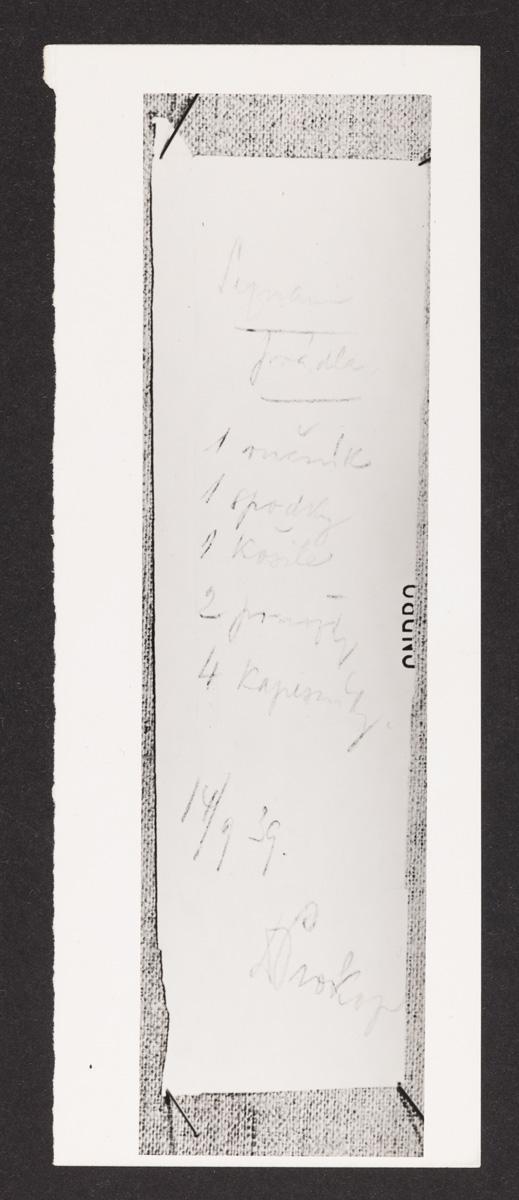 Seznam
prádla
1 ručník
1 spodky
1 košile
2 ponožky
4 kapesníky.
14/9 39.
Prokop
ONDRO